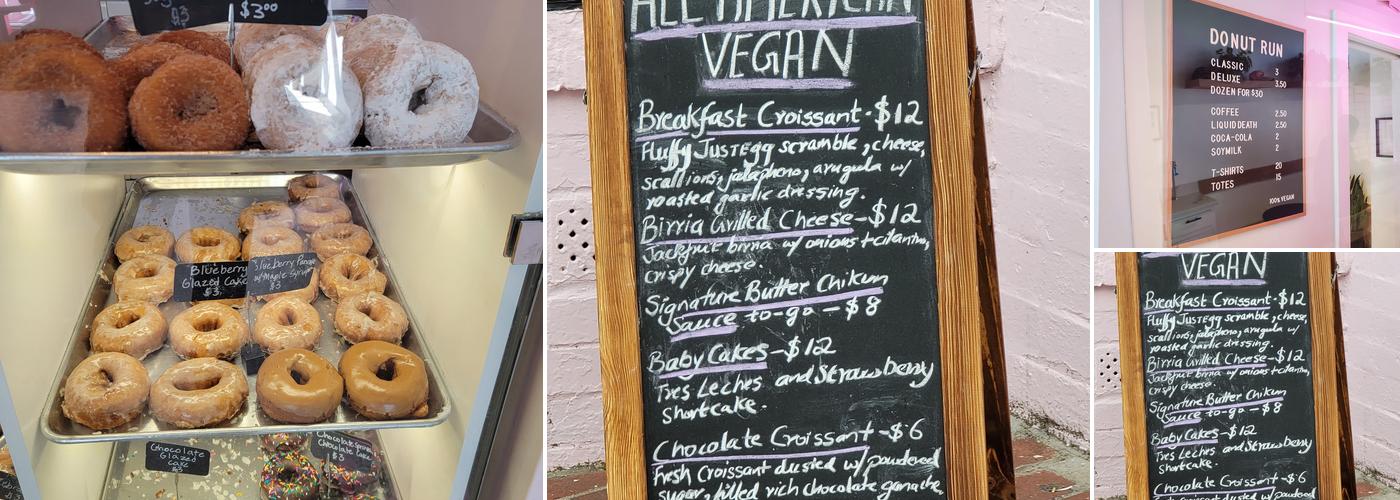 $3.00
Blueberry
Glazed Cake
$3.
Blueberry Pancake
w/ Maple Syrup
$3
Chocolate
Glazed
Cake
$3
Chocolate Sprinkle
Chocolate Cake
$3
ALL AMERICAN
VEGAN
Breakfast Croissant-$12
Fluffy JUSTEgg scramble, cheese,
scallions, jalapheno, arugula w/
roasted garlic dressing.
Birria Grilled Cheese-$12
Jackfruit birria w/ onions + cilantro,
crispy cheese.
Signature Butter Chikun
Sauce to-go - $8
Baby Cakes-$12
Tres Leches and Strawberry
Shortcake.
Chocolate Croissant -$6
Fresh Croissant dusted w/ powdered
sugar, filled rich chocolate ganache,
DONUT RUN
CLASSIC 3
DELUXE 3.50
DOZEN FOR $30
COFFEE 2.50
LIQUID DEATH 2.50
COCA-COLA 2
SOYMILK 2
T-SHIRTS 20
TOTES 15
100% VEGAN
VEGAN
Breakfast Croissant-$12
Fluffy JUSTEgg scramble, cheese,
scallions, jalapheno, arugula w/
roasted garlic dressing.
Birria Grilled Cheese-$12
Jackfruit birria w/ onions + cilantro,
crispy cheese.
Signature Butter Chikun
Sauce to-go - $8
Baby Cakes-$12
Tres Leches and Strawberry
Shortcake.
Chocolate Croissant -$6
Fresh Croissant dusted w/ powdered